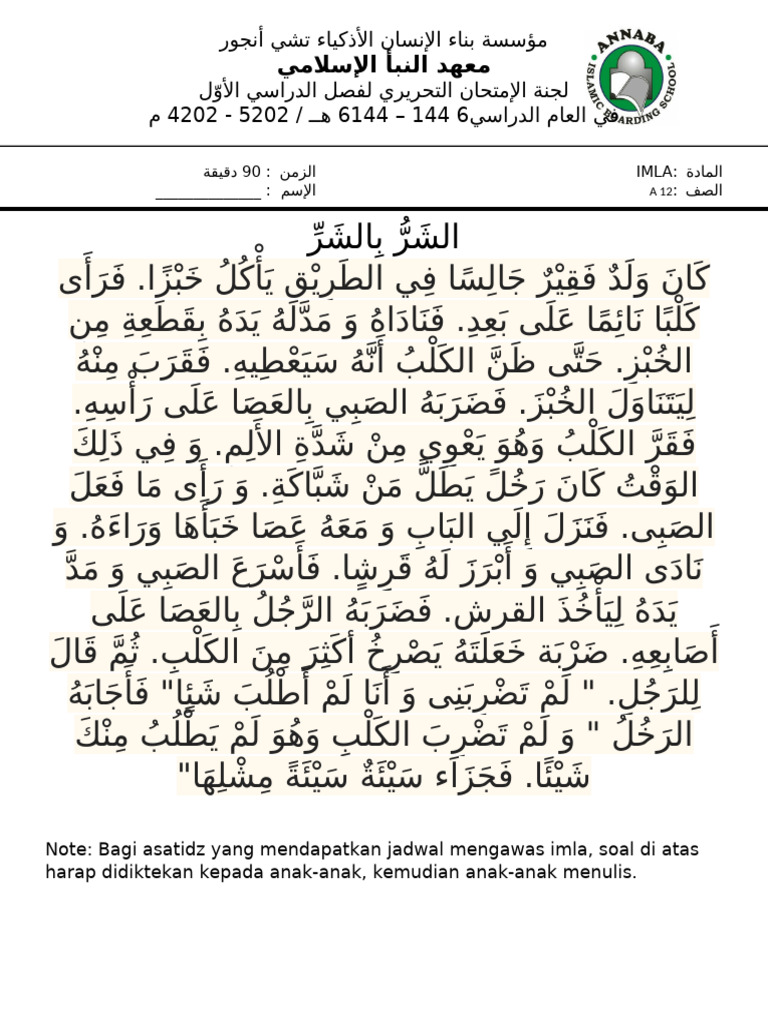 مؤسسة بناء الإنسان الأذكياء تشي أنجور
معهد النبأ الإسلامي
لجنة الإمتحان التحريري لفصل الدراسي الأوّل
في العام الدراسي6 144 – 6144 هــ / 5202 - 4202 م
ANNABA
ISLAMIC BOARDING SCHOOL
المادة :IMLA
الزمن : 90 دقيقة
الصف :12 A
الإسم : _______________
الشَرُّ بِالشَرِّ
كَانَ وَلَدٌ فَقِيْرٌ جَالِسًا فِي الطَرِيْقِ يَأْكُلُ خَبْزًا. فَرَأَى
كَلْبًا نَائِمًا عَلَى بَعِدِ. فَنَادَاهُ وَ مَدَّلَهُ يَدَهُ بِقَطَعِةِ مِن
الخُبْزِ. حَتَّى ظَنَّ الكَلْبُ أَنَّهُ سَيَعْطِيهِ. فَقَرَبَ مِنْهُ
لِيَتَنَاوَلَ الخُبْزَ. فَضَرَبَهُ الصَبِي بِالعَصَا عَلَى رَأْسِهِ.
فَقَرَّ الكَلْبُ وَهُوَ يَعْوِي مِنْ شَدَّةِ الأَلِم. وَ فِي ذَلِكَ
الوَقْتُ كَانَ رَخُلً يَطَلَّ مَنْ شَبَّاكَةِ. وَ رَأَى مَا فَعَلَ
الصَبِى. فَنَزَلَ إِلَي البَابِ وَ مَعَهُ عَصَا خَبَأَهَا وَرَاءَهُ. وَ
نَادَى الصَبِي وَ أَبْرَزَ لَهُ قَرِشِا. فَأَسْرَعَ الصَبِي وَ مَدَّ
يَدَهُ لِيَأْخُذَ القرش. فَضَرَبَهُ الرَّجُلُ بِالعَصَا عَلَى
أَصَابِعِهِ. ضَرْبَة خَعَلَتَهُ يَصْرِخُ أكَثِرَ مِنَ الكَلْبِ. ثُمَّ قَالَ
لِلرَجُلِ. " لَمْ تَضْرِبَنِى وَ أَنَا لَمْ أَطْلُبَ شَئِا" فَأَجَابَهُ
الرَخُلُ " وَ لَمْ تَضْرِبَ الكَلْبِ وَهُوَ لَمْ يَطْلُبُ مِنْكَ
شَيْئًا. فَجَزَاَء سَيْئَةٌ سَيْئَةً مِشْلِهَا"
Note: Bagi asatidz yang mendapatkan jadwal mengawas imla, soal di atas
harap didiktekan kepada anak-anak, kemudian anak-anak menulis.